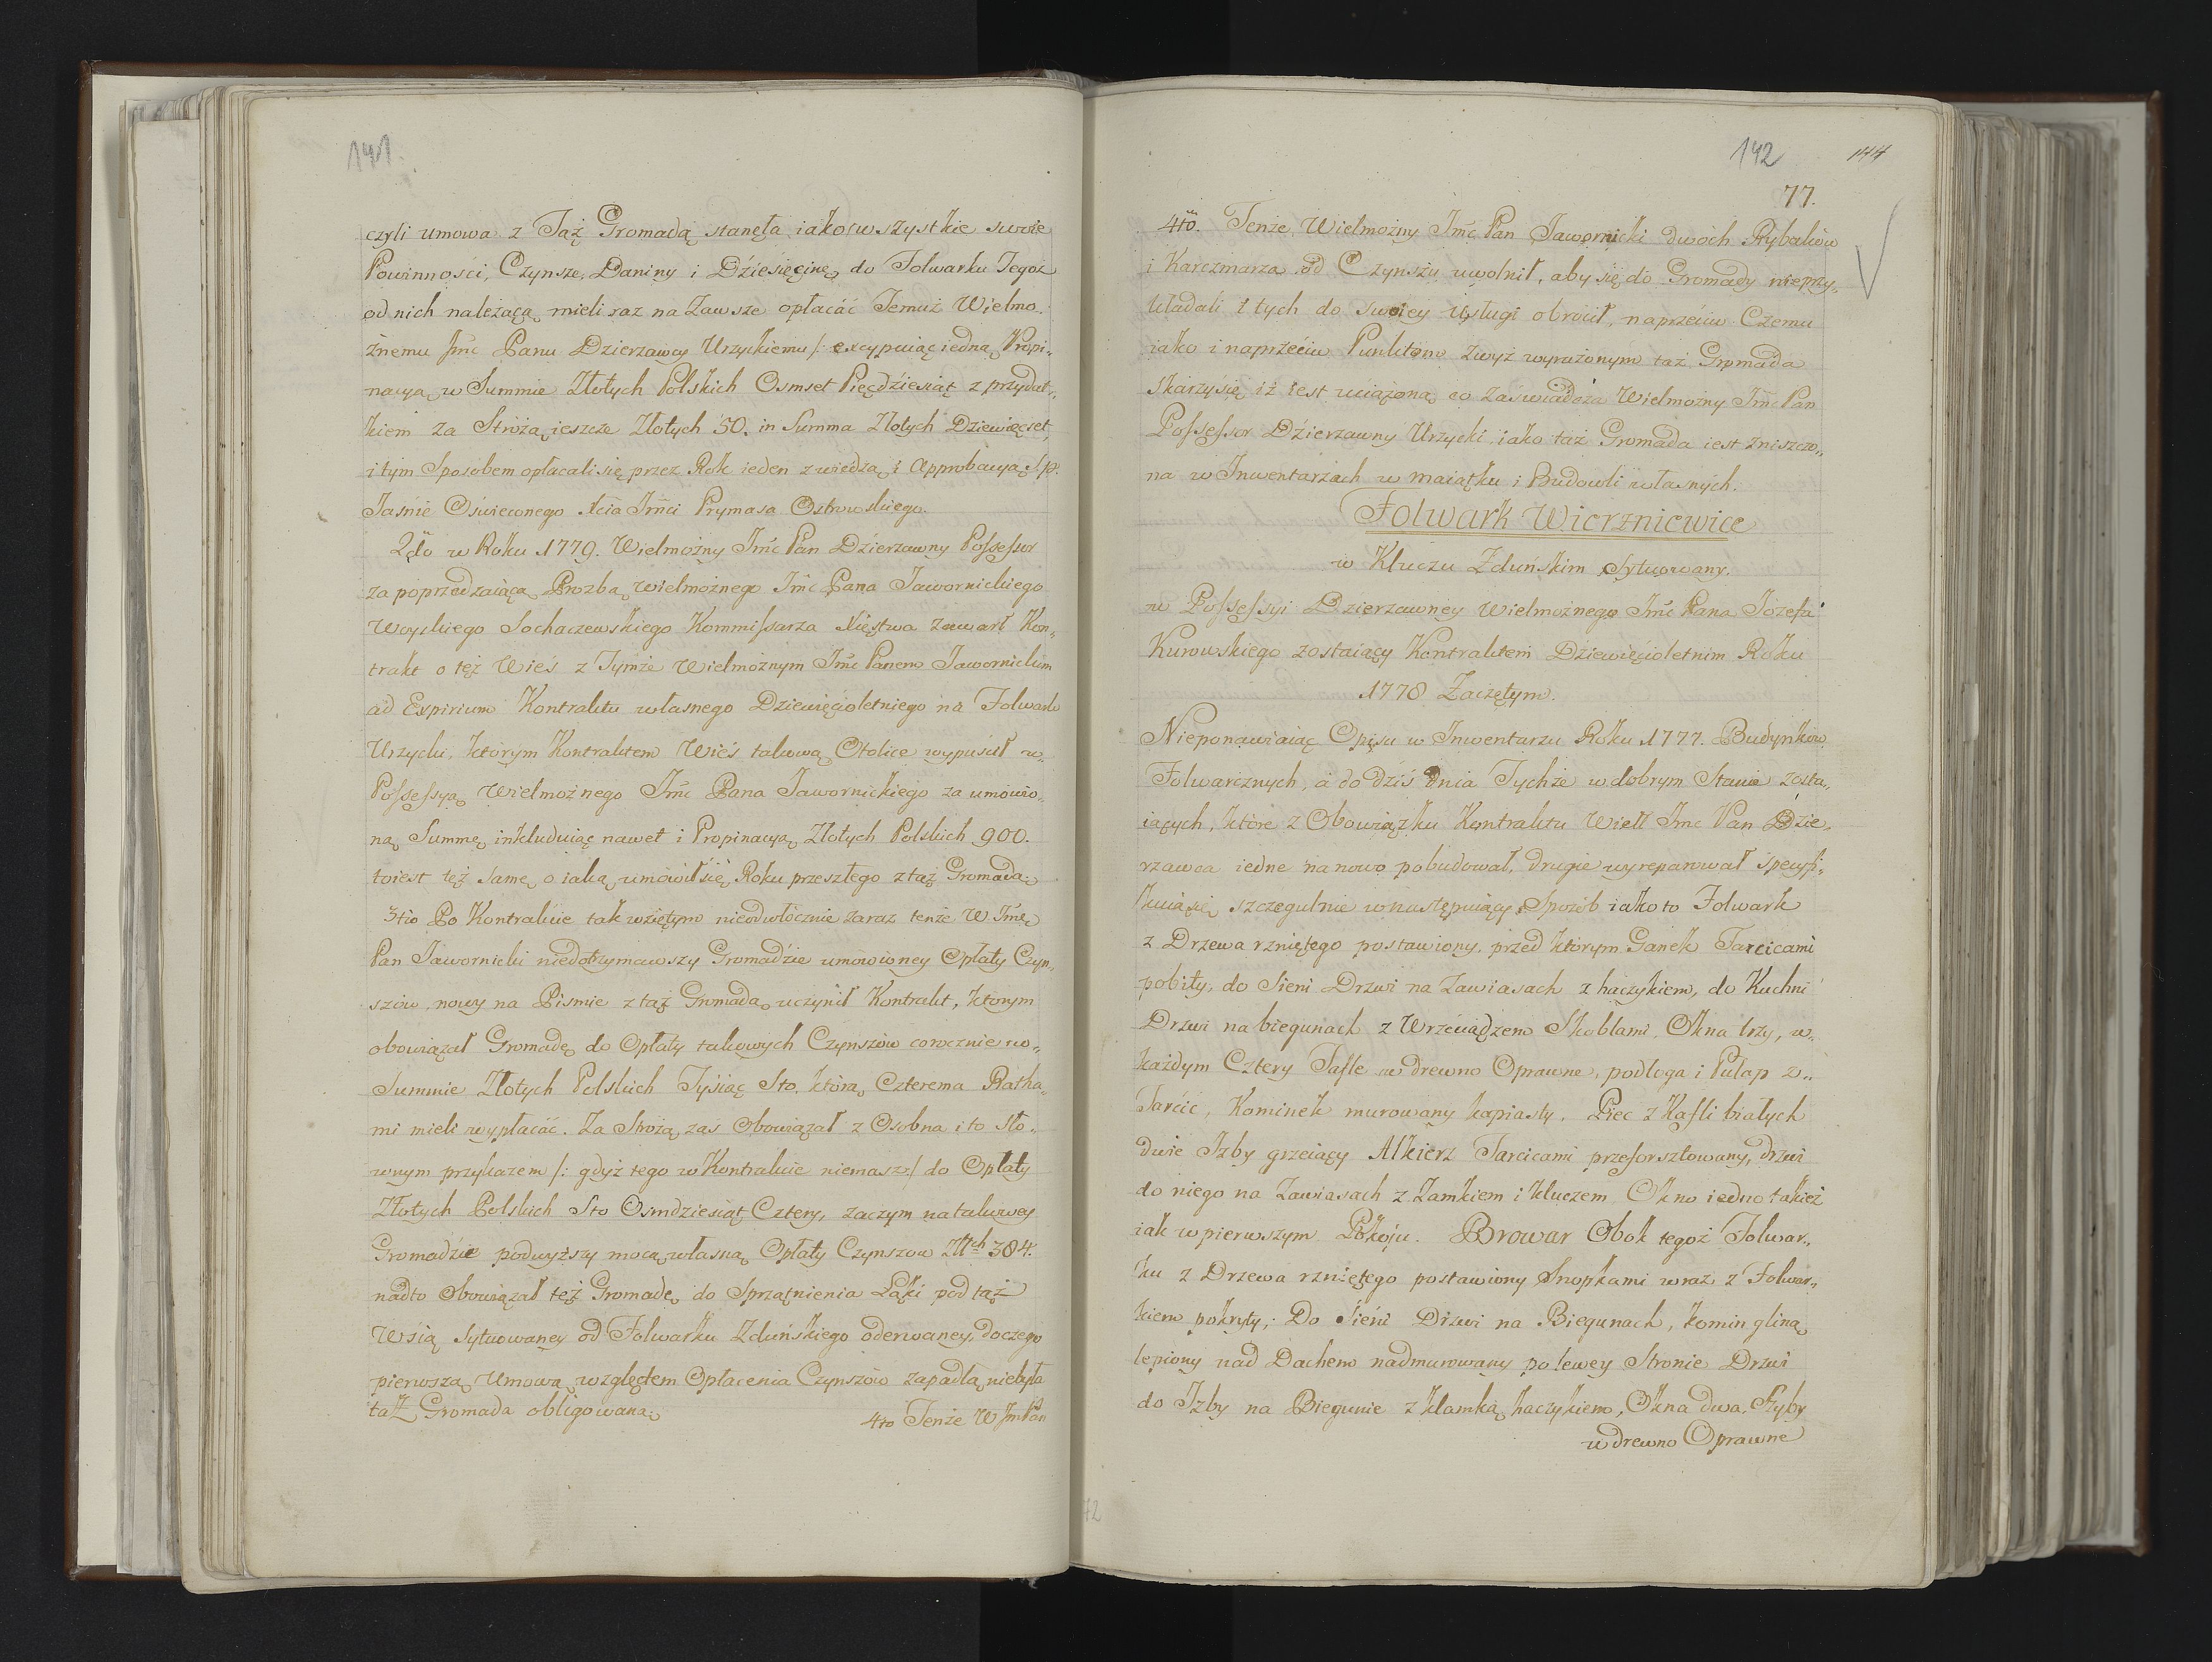 141.
czyli umowa z Taż Gromadą stanęła iako wszystkie swoie
Powinności, Czynsze, Daniny i Dziesięcinę do Folwarku Tegoż
od nich należącą mieli raz na Zawsze opłacać Temuż Wielmo-
żnemu Jmć Panu Dzierzawcy Urzyckiemu /: excypuiąc iedną Propi„
nacyą w Summie Złotych Polskich Osmset Pięćdziesiąt z przydat„
kiem za Stróżą ieszcze Złotych 50. in Summa Złotych Dziewięcset,
i tym Sposobem opłacali się przez Rok ieden z wiedzą i Approbacyą S. p.
Jaśnie Oświeconego Xcia Jmci Prymasa Ostrowskiego.
2do w Roku 1779. Wielmożny Jmć Pan Dzierzawny Possessor
za poprzedzaiącą Prozbą Wielmożnego Jmć Pana Jawornickiego
Woyskiego Sochaczewskiego Kommissarza Xięstwa zawarł Kon„
trakt o też Wieś z Tymże Wielmożnym Jmć Panem Jawornickim
ad Expirium Kontraktu własnego Dziewięcioletniego na Folwark
Urzycki, którym Kontraktem Wieś takową Otolice wypuścił w„
Possessyą Wielmożnego Jmć Pana Jawornickiego za umowio„
ną Summę inkluduiąc nawet i Propinacyą Złotych Polskich 900.
toiest też samę o iaką umówił się Roku przeszłego z taż Gromadą.
3tio Po Kontrakcie tak wziętym nieodwłocznie zaraz tenże W Jmć
Pan Jawornicki niedotrzymawszy Gromadzie umowioney Opłaty Czyn„
szów, nowy na Pismie z taż Gromadą uczynił Kontrakt, którym
obowiązał Gromadę do Opłaty takowych Czynszów corocznie w„
Summie Złotych Polskich Tysiąc Sto, którą Czterema Ratha„
mi mieli wypłacać. Za Strożą zas Obowiązał z Osobna i to Sło„
wnym przykazem /: gdyż tego w Kontrakcie niemasz :/ do Opłaty
Złotych Polskich Sto Osmdziesiąt Cztery, zaczym na takowey
Gromadzie podwyższy mocą własną Opłaty Czynszow Złłch 384.
nadto Obowiązał też Gromadę do Sprzątnienia Łąki pod taż
Wsią Sytuowaney od Folwarku Zduńskiego oderwaney, do czego
pierwszą Umową względem Opłacenia Czynszów zapadłą niebyła
taż Gromada obligowana.
4to Tenże W Jm Pan
142 144
77.
4to. Tenże Wielmożny Jmć Pan Jawornicki dwóch Rybaków
i Karczmarza od Czynszu uwolnił, aby się do Gromady nieprzy„
kładali i tych do swoiey Usługi obrócił, naprzeciw Czemu
iako i naprzeciw Punktom zwyż wyrażonym taż Gromada
skarzy się iż iest uciążoną co zaświadcza Wielmożny Jmć Pan
Possessor Dzierzawny Urzycki, iako taż Gromada iest zniszczo„
na w Inwentarzach w maiątku i Budowli własnych.
Folwark Wierzniewice
w Kluczu Zduńskim Sytuowany.
w Possessyi Dzierzawney Wielmożnego Jmć Pana Józefa
Kurowskiego zostaiący Kontraktem Dziewięcioletnim Roku
1778 Zaczętym.
Nieponawiaiąc Opisu w Inwentarzu Roku 1777. Budynków
Folwarcznych, a do dziś dnia Tychże w dobrym Stanie zosta„
iących, które z Obowiązku Kontraktu Wiell Jmć Pan Dzie„
rzawca iedne na nowo pobudował, drugie wyreparował specyfi„
kuią się szczegulnie w następuiący Sposób iako to Folwark
z Drzewa rzniętego postawiony, przed którym Ganek Tarcicami
pobity, do Sieni Drzwi na Zawiasach z haczykiem, do Kuchni
Drzwi na biegunach z Wrzeciądzem Skoblami, Okna trzy, w„
każdym Cztery Tafle w drewno Oprawne, podłoga i Pułap z„
Tarcic, Kominek murowany kapiasty. Piec z Kafli białych
dwie Izby grzeiący Alkierz Tarcicami przeforsztowany, drzwi
do niego na Zawiasach z Zamkiem i kluczem, Okno iedno takież
iak w pierwszym Pokoju. Browar Obok tegoż Folwar„
ku z Drzewa rzniętego postawiony Snopkami wraz z Folwar„
kiem pokryty; Do Sieni Drzwi na Biegunach, komin gliną
lepiony nad Dachem nadmurowany po lewey Stronie Drzwi
do Izby na Biegunie z klamką haczykiem, Okna dwa, Szyby
w drewno Oprawne
72